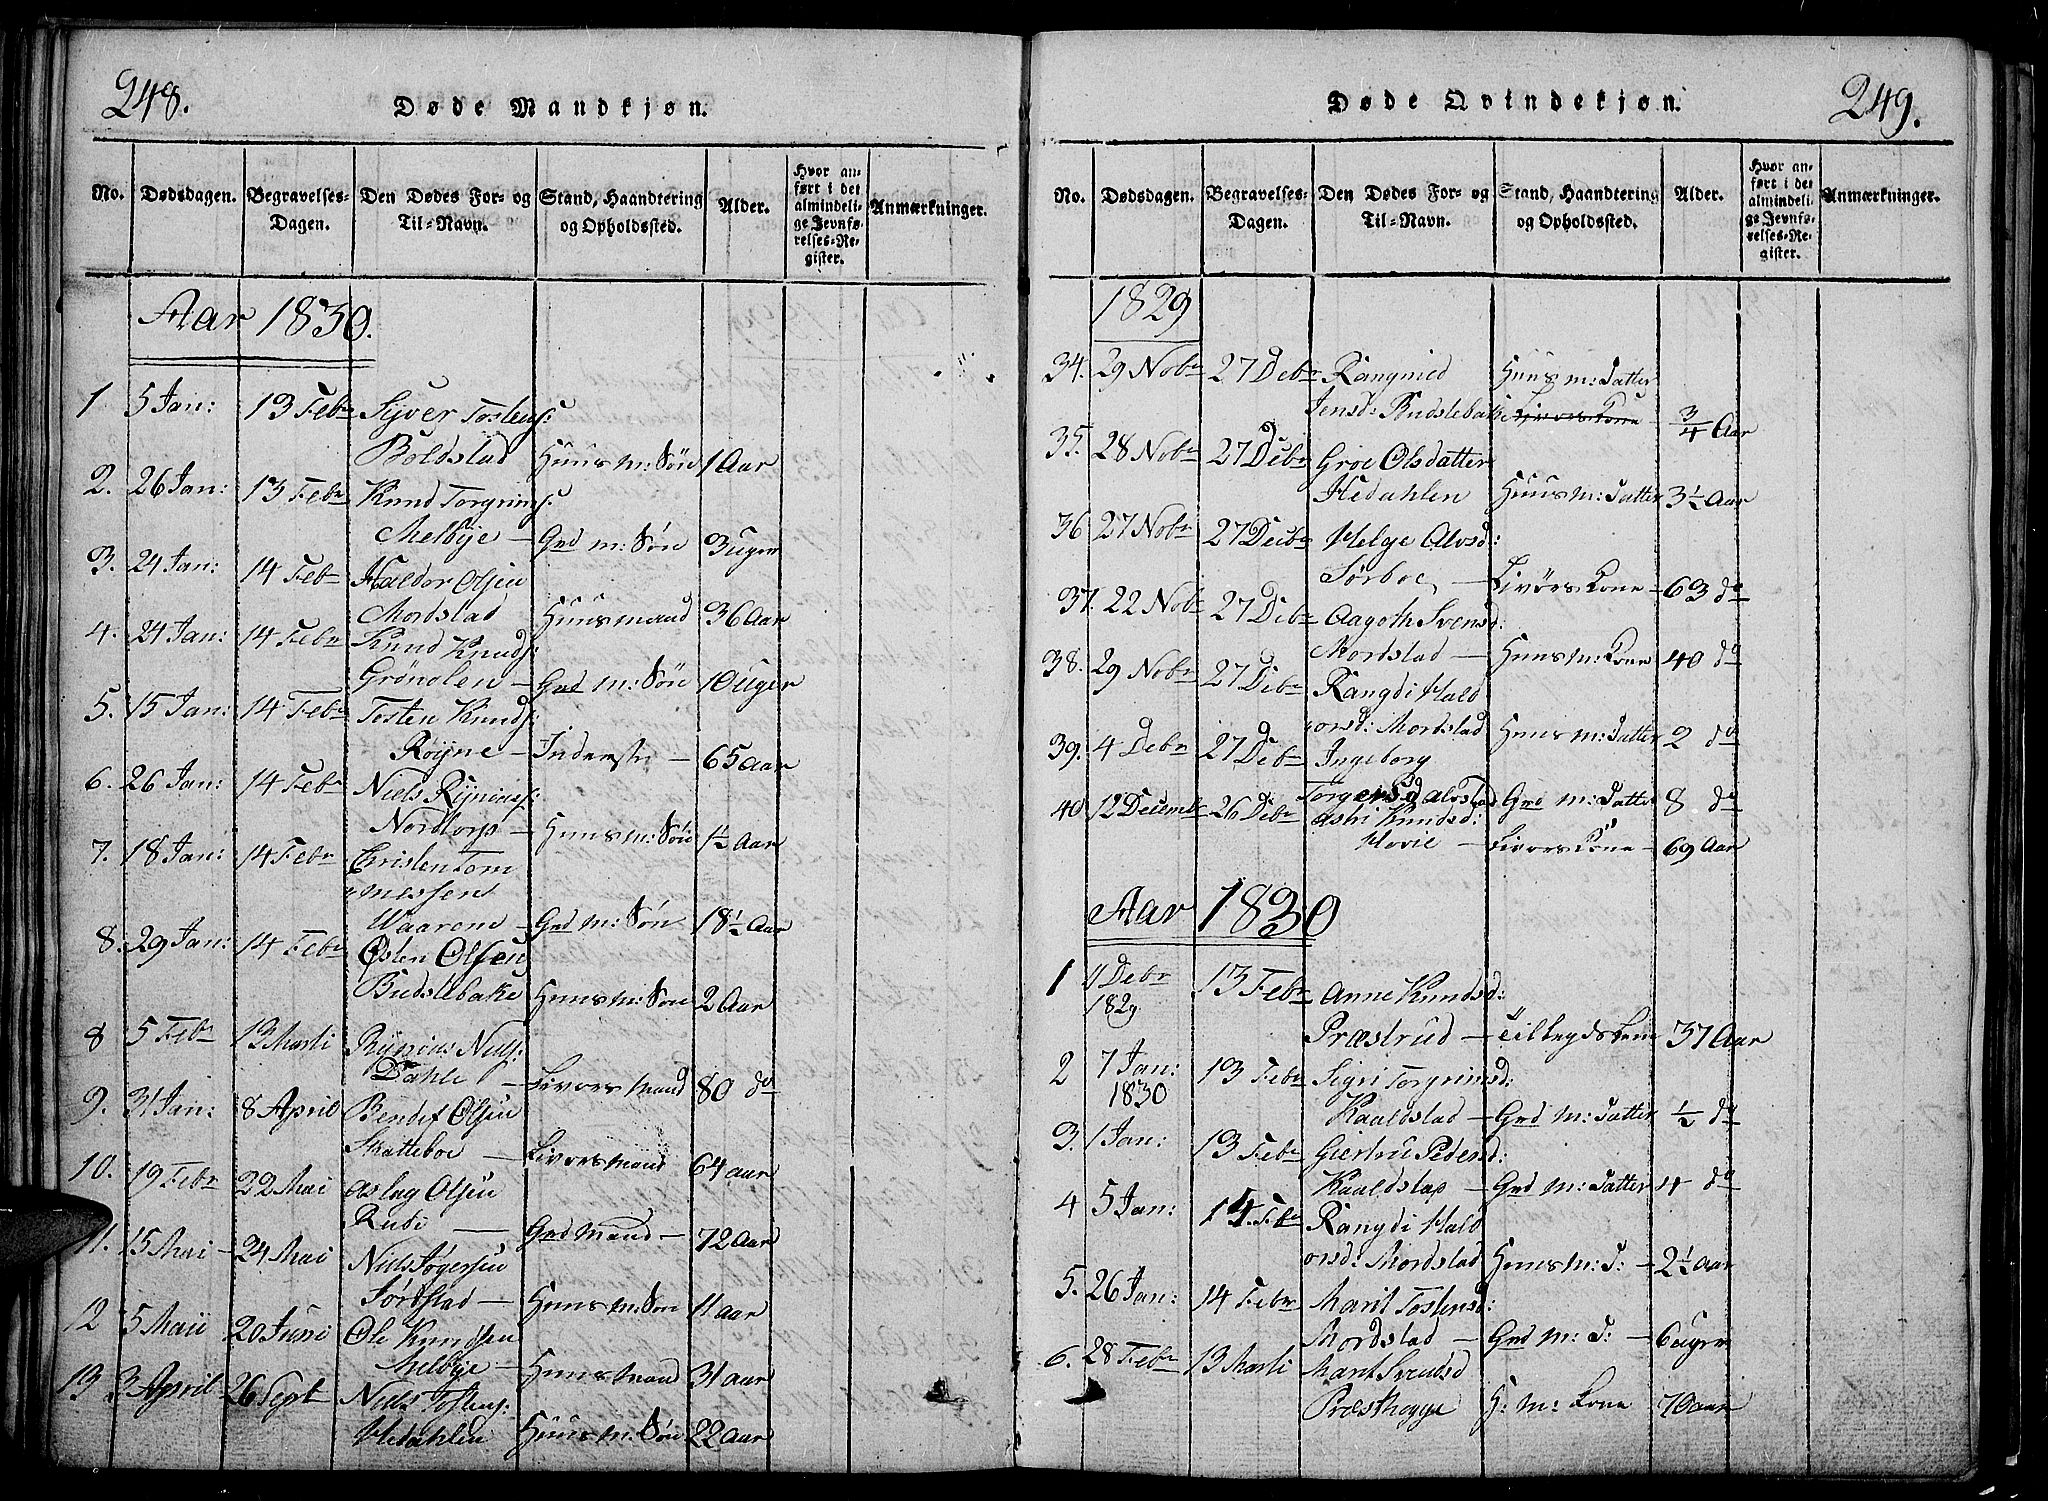 248.
Døde Mandkjøn.
No. Dødsdagen. Begravelses-Dagen. Den Dødes For- og Til-Navn. Stand, Haandtering og Opholdssted. Alder. Hvor anført i det almindelige Jevnførelses-Register. Anmærkninger.
Aar 1830.
1 5 Jan: 13 Febr Syver Tostens:
Boldstad Huusm: Søn 1 Aar
2. 26 Jan: 13 Febr Knud Torgrims:
Melbye – Grd m: Søn 3 Uger
3. 24 Jan: 14 Febr Haldor Olsen
Mordstad Huusmand 36 Aar
4. 24 Jan: 14 Febr Knud Knuds:
Grønolen – Grd m: Søn 10 Uger
5. 15 Jan: 14 Febr Tosten Knuds:
Røyne – Inderste – 65 Aar
6. 26 Jan: 14 Febr Niels Rynias:
Nordtorp – Huusm: Søn 1½ Aar
7. 18 Jan: 14 Febr Cristen Tom
messen
Waarene – Grd m: Søn 18½ Aar
8. 29 Jan: 14 Febr Østen Olsen
Budslebake Huusm: Søn 2 Aar
8 5 Febr 13 Marti Rynias Niels:
Dahle – Livørs Mand 80 do
9. 31 Jan: 8 April Bendet Olsen
Skatteboe – Livørs Mand 64 aar
10. 19 Febr 22 Mai Aslag Olsen
Rube – Grd Mand – 72 Aar
11. 15 Mai – 24 Mai Niels Jøgersen
Sørstad – Huusm: Søn 11 aar
12 5 Maii 20 Juni Ole Knudsen
Melbye – Huusmand 31 aar
13 3 April 26 Sept Niels Tostens:
Hedahlen Huusm: Søn 22 Aar
249.
Døde Qvindekjøn.
No. Dødsdagen. Begravelses-Dagen. Den Dødes For- og Til-Navn. Stand, Haandtering og Opholdssted. Alder. Hvor anført i det almindelige Jevnførelses-Register. Anmærkninger.
1829
34. 29 Nobr 27 Debr Rangnied Huusm: Datter
Jensd: Budslebake Livørs Kone ¾ Aar
35. 28 Nobr 27 Debr Groe Olsdatter
Hedahlen Huusm: Datter 3½ Aar
36 27 Nobr 27 Decbr Helge Alvsd:
Sørboe, – Livørs Kone – 63 do
37. 22 Nobr 27 Debr Aagoth Svensd:
Mordstad – Huusm: Kone 40 do
38. 29 Nobr 27 Debr Rangdi Hald
orsd: Mordstad Huusm: Datter 2 do
39. 4 Debr 27 Debr Ingeborg
Torgersd Alvstad Grd m: Datter 8 do
40 12 Decembr 26 Debr Astri Knudsd:
Hovie – Livørs Kone – 69 Aar
Aar 1830
1 11 Debr 1829. 13 Febr Anne Knudsd:
Præstrud – Tillægds Lem 37 Aar
2 7 Jan: 1830 13 Febr Sigri Torgrimsd:
Kaaldstad – Grd m: Datter ½ do
3. 1 Jan: 13 Febr Giertru Pedersd:
Kaaldstad – Grd m: Datter 4 do
4 5 Jan: 14. Febr Rangdi Hald
orsd: Mordstad Huusm: D: – 2½ aar
5. 26 Jan: 14 Febr Marit Tostensd:
Mordstad – Grd m: D: – 6 uger
6. 28 Febr 13 Marti Marit Svendsd
Præsthagge H: m: Kone 70 aar